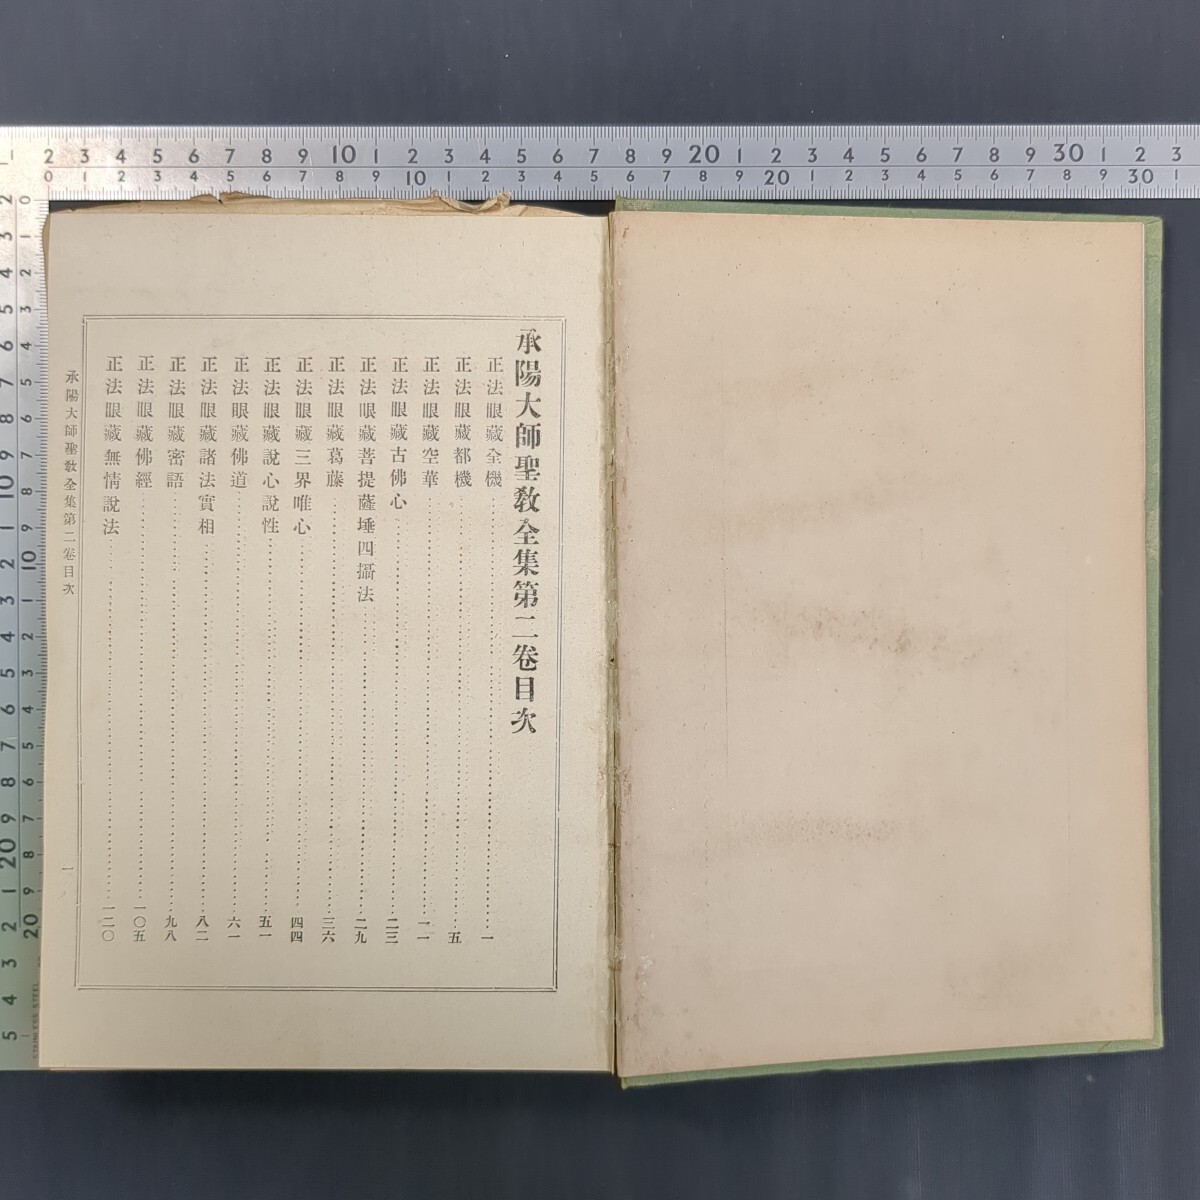 承陽大師聖教全集第二卷目次
正法眼藏全機……一
正法眼藏都機……五
正法眼藏空華……一一
正法眼藏古佛心……二三
正法眼藏菩提薩埵四攝法……二九
正法眼藏葛藤……三六
正法眼藏三界唯心……四四
正法眼藏說心說性……五一
正法眼藏佛道……六一
正法眼藏諸法實相……八二
正法眼藏密語……九八
正法眼藏佛經……一〇五
正法眼藏無情說法……一二〇
承陽大師聖教全集第二卷目次
一
1 2 3 4 5 6 7 8 9 10 1 2 3 4 5 6 7 8 9 20 1 2 3 4 5 6 7 8 9 30 1 2 3
0 1 2 3 4 5 6 7 8 9 10 1 2 3 4 5 6 7 8 9 20 1 2 3 4 5 6 7 8 9 30 1
2 3 4 5 6 7 8 9 10 1 2 3 4 5 6 7 8 9 20 1 2 3 4 5
0 1 2 3 4 5 6 7 8 9 10 1 2 3 4 5 6 7 8 9 20
STAINLESS STEEL